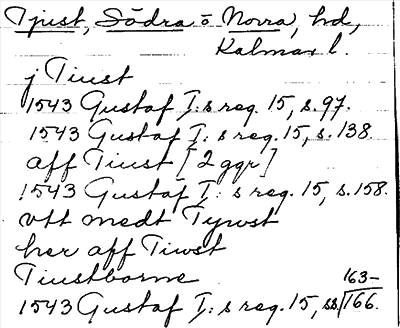 Tjust, Södra o Norra, hd,
Kalmar l.
j Tiust
1543 Gustaf I:s reg. 15, s. 97.
1543 Gustaf I:s reg. 15, s. 138.
aff Tiust [2 ggr]
1543 Gustaf I:s reg. 15, s. 158.
vtt medt Tywst
her aff Tiwst
Tiustborne
1543 Gustaf I:s reg. 15, ss. 163-166.